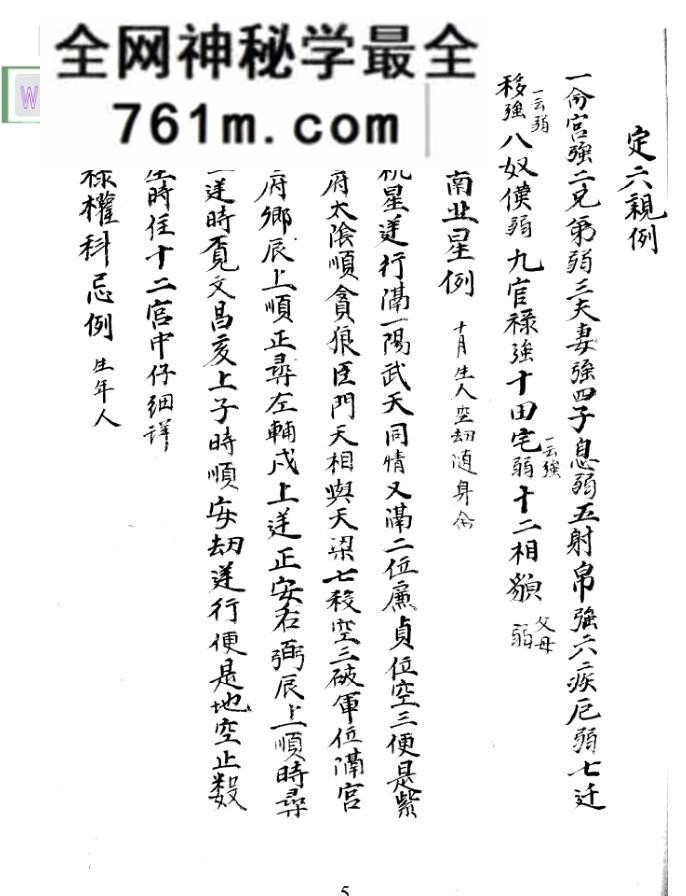 全网神秘学最全
761m.com
W
定六親例
一命宮強二兄弟弱三夫妻強四子息弱五射帛強六疾厄弱七迁
移強一云弱八奴僕弱九官祿強十田宅弱一云強十二相貌父母弱
南北星例 十月生人空劫随身命
机星逆行滿一陽武天同情又滿二位廉貞位空三便是紫
府太陰順貪狼巨門天相與天梁七殺空三破軍位滿宮
府鄉辰上順正尋左輔戌上逆正安右弼辰上順時尋
逆時覓文昌亥上子時順安劫逆行便是地空止数
生時住十二宮中仔细詳
祿權科忌例 生年人
5